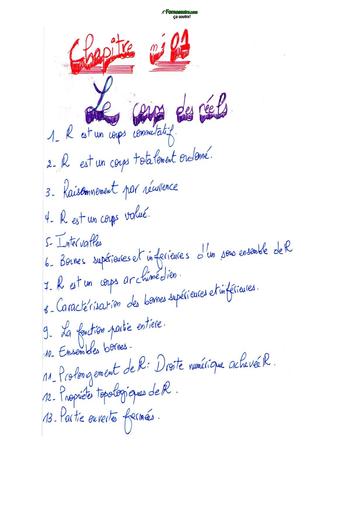 Chapitre n°01
Le corps des réels.
1_ R est un corps commutatif
2_ R est un corps totalement ordonné.
3_ Raisonnement par récurrence
4_ R est un corps valué.
5_ Intervalles
6_ Bornes supérieures et inferieures d'un sous ensemble de R
7_ R est un corps archimédien.
8_ Caractérisation des bornes supérieures et inférieures.
9_ La fonction partie entiere.
10_ Ensembles bornes.
11_ Prolongement de R: Droite numérique achevée R.
12_ Propriétés topologiques de R.
13_ Partie ouvertes fermées.